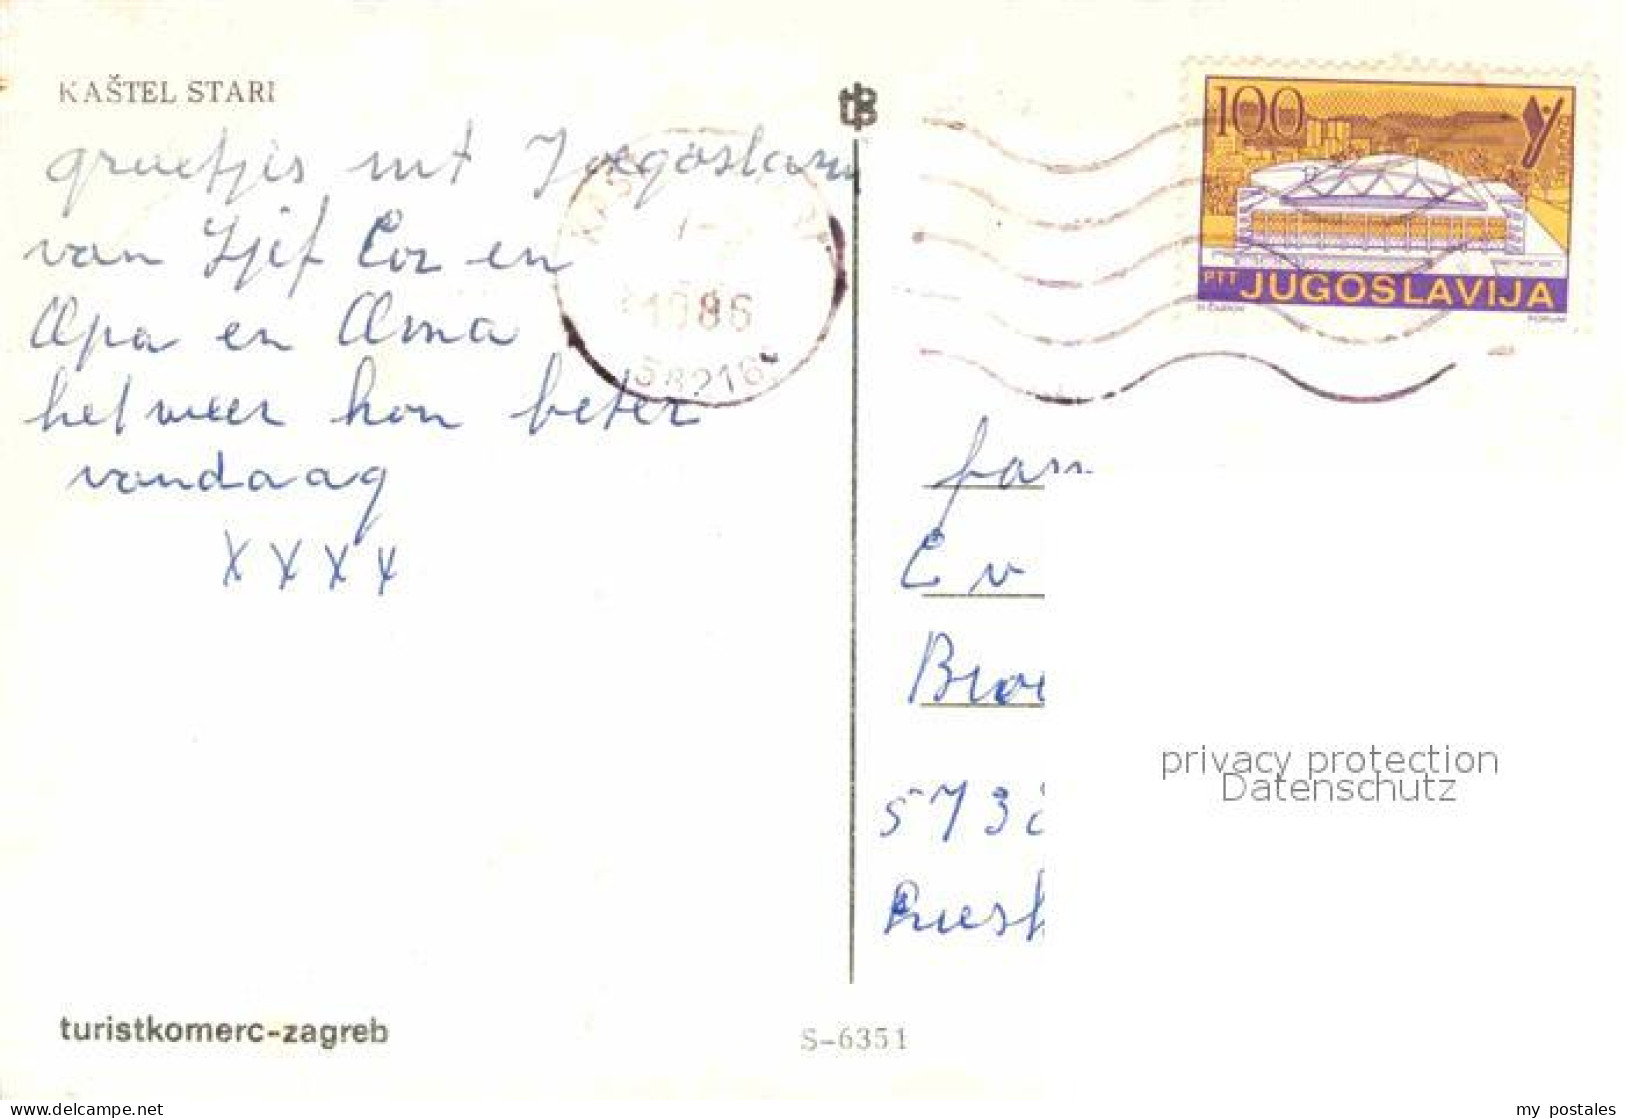 KAŠTEL STARI
groetjis uit Joegoslavi
van Sjif Cor en
Opa en Oma
het weer kon beter
vandaag
XXXX
1986
58216
100
PTT JUGOSLAVIJA
FORUM
fam
C v
573
privacy protection
Datenschutz
turistkomerc-zagreb
S-6351
my_postales